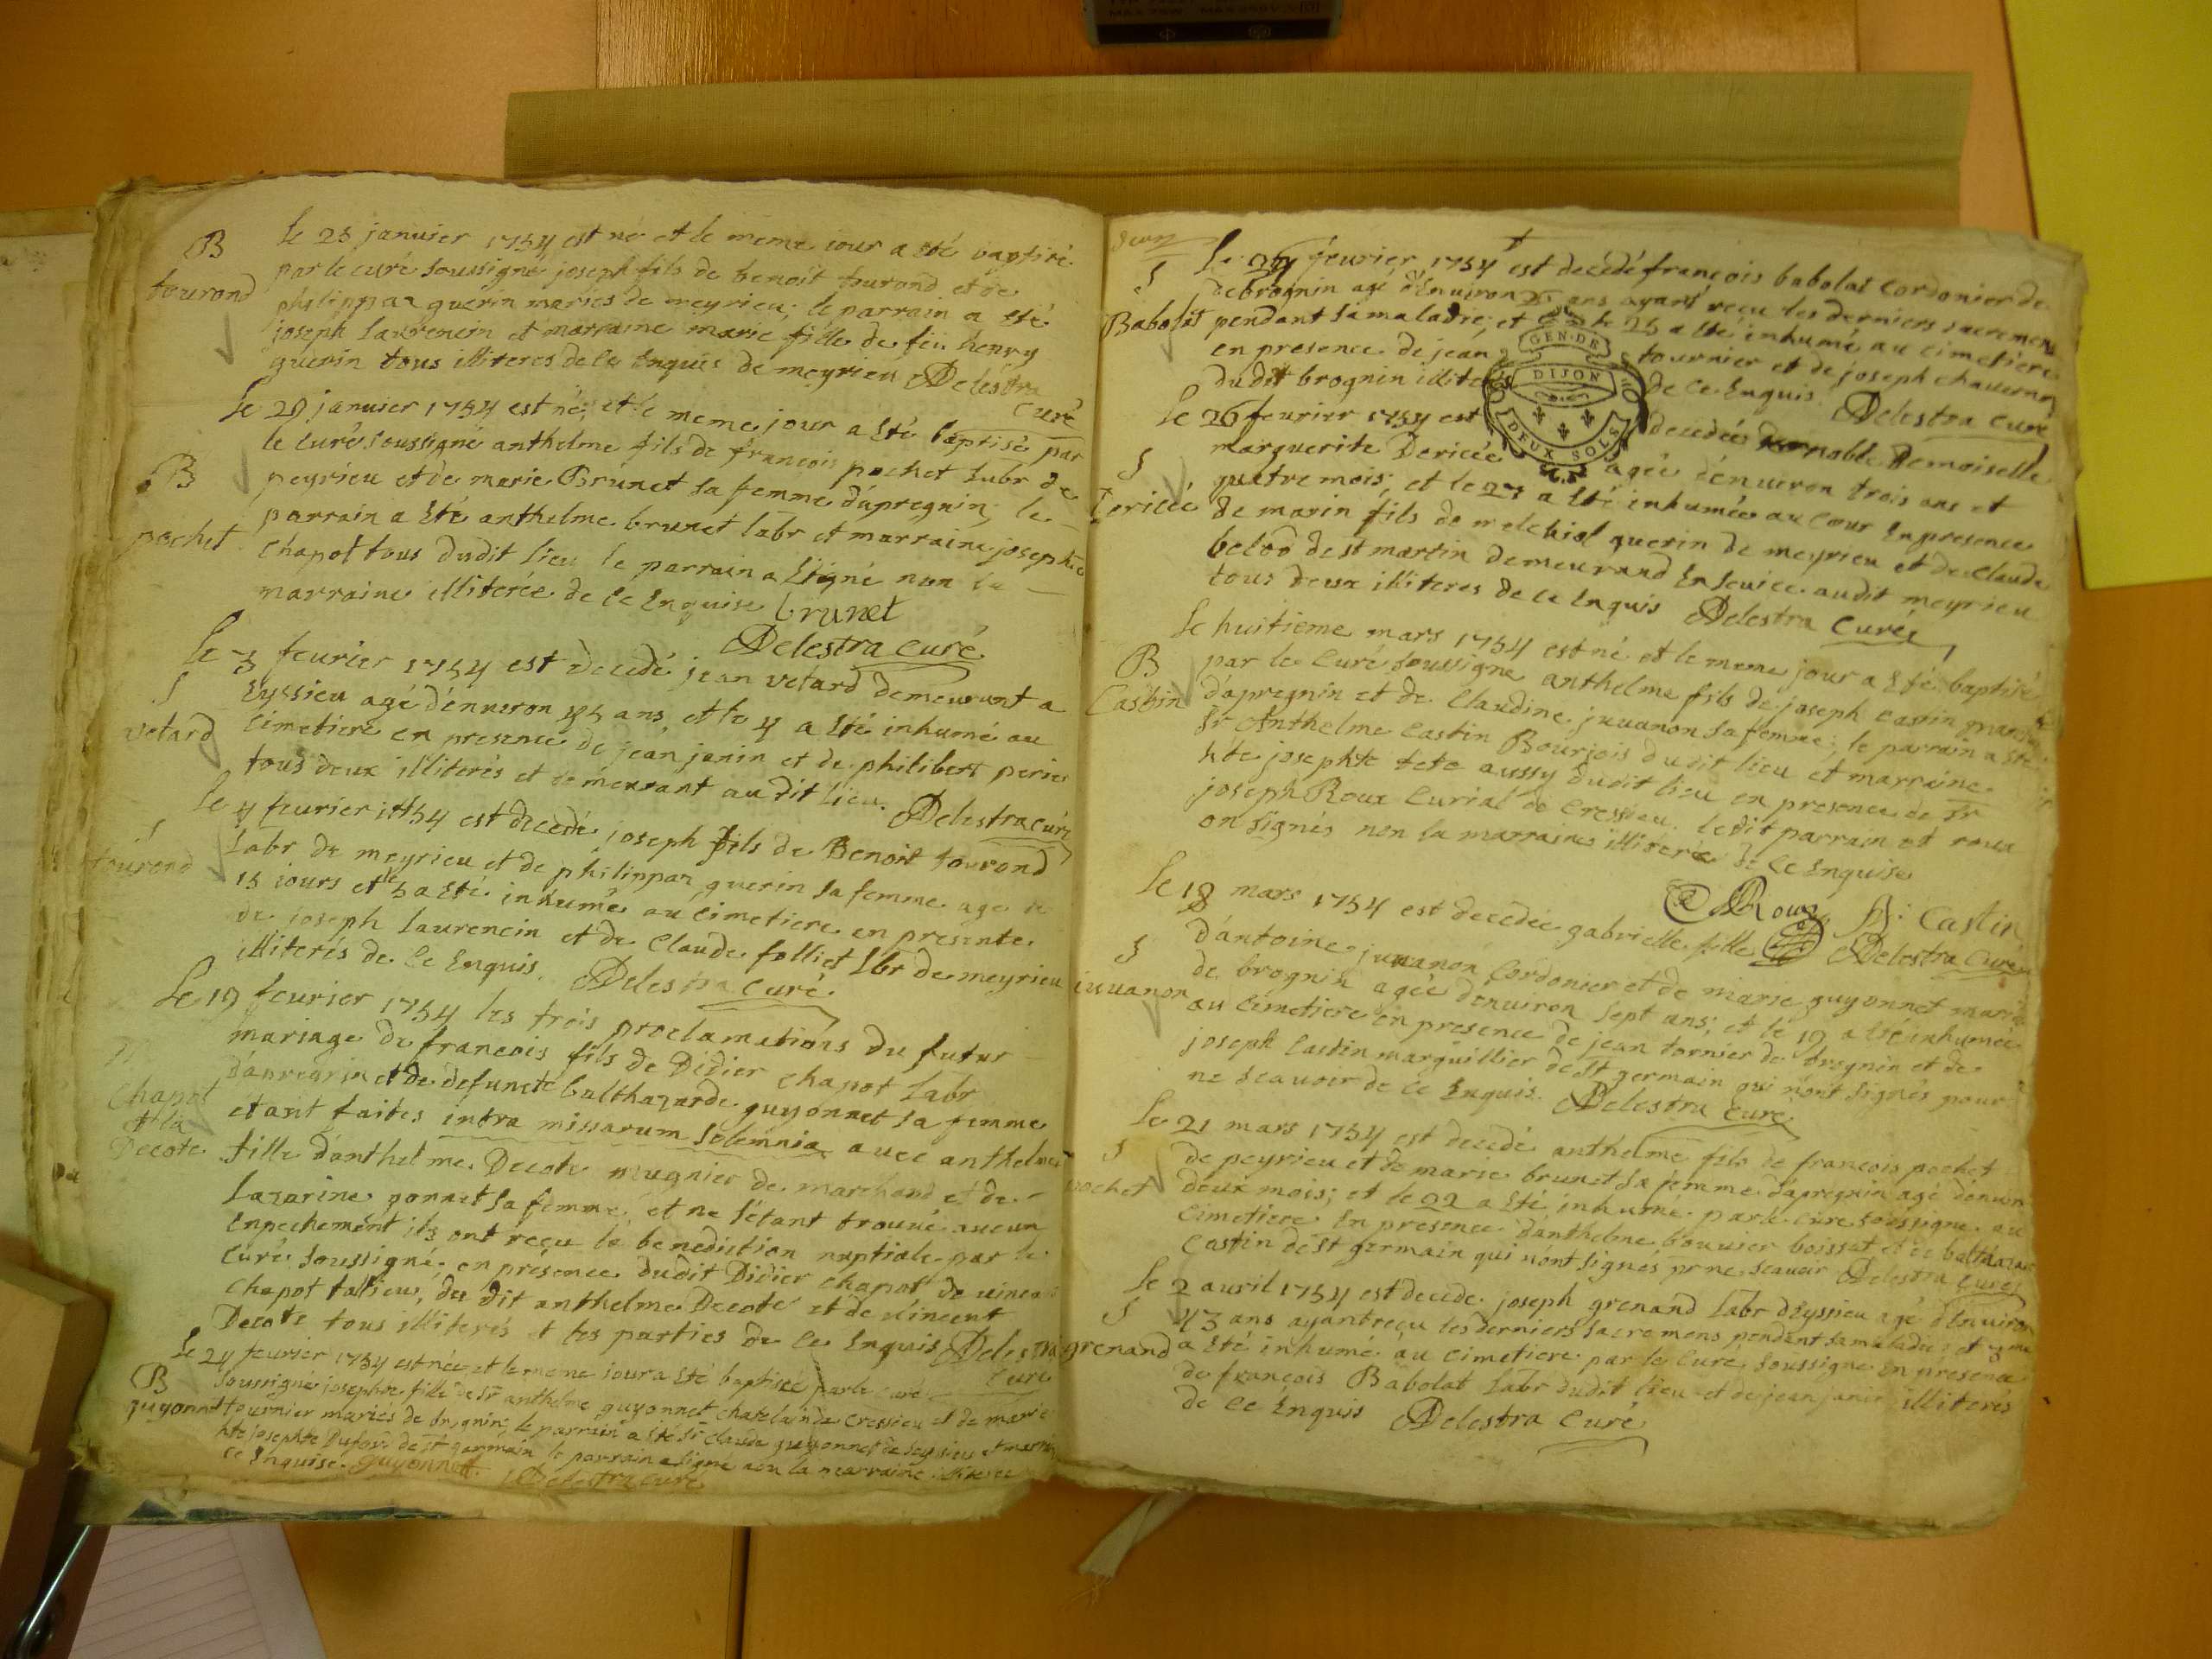 B
tourond
le 23 janvier 1754 est né et le meme iour a esté baptisé
par le curé soussigné joseph fils de benoit tourond et de
philippaz guerin mariés de meyrieu; le parrain a esté
joseph laurencin et marraine marie fille de feu henry
guerin tous illiteres de ce Enquis de meyrieu Delestra
curé
B
pochet
le 29 janvier 1754 est né et le meme jour a Eté baptisé par
le curé soussigné anthelme fils de francois pochet labr de
peyrieu et de marie Brunet sa femme d'apregnin; le
parrain a Eté anthelme brunet labr et marraine josephte
chapot tous dudit lieu le parrain a signé non la
marraine illiterée de ce Enquise brunet
Delestra curé
S
vetard
Le 3 feurier 1754 est decedé jean vetard demeurant a
Eyssieu agé d'enuiron 45 ans et le 4 a Eté inhumé au
cimetiere en presence de jean janin et de philibert perier
tous deux illiterés et demeurant audit lieu. Delestra curé
S
tourond
le 4 feurier 1754 est decedé joseph fils de Benoit tourond
labr de meyrieu et de philippaz guerin sa femme agé de
13 iours et le 5 a Eté inhumé au cimetiere en presente
de joseph laurencin et de Claude folliet lbr de meyrieu
illiterés de ce Enquis. Delestra curé
M
Chapot
et la
Decote
Le 19 feurier 1754 les trois proclamations du futur
mariage de francois fils de Didier chapot labr
d'apregnin et de defuncte balthazarde guyonnet sa femme
etant faites intra missarum solemnia avec anthelme
fille d'anthelme Decote mugnier de marchand et de
Lazarine gonnet sa femme et ne s'étant trouvé aucun
Enpechement ils ont reçu la benediction nuptiale par le
curé soussigné, en présence dudit Didier chapot de vincent
chapot tallieur, du dit anthelme Decote et de vincent
Decote tous illiterés et les parties de ce Enquis Delestra
curé
B
guyonnet
Le 24 feurier 1754 est née et le meme iour a Eté baptisée par le curé
soussigné josephte fille de Sr anthelme guyonnet chatelain de Cressieu et de marie
tournier mariés de brognin; le parrain a Eté Sr claude guyonnet de seyssieu et marraine
hte josephte Dufour de st germain le parrain a signé non la marraine illiterée
ce Enquise. guyonnet. Delestra curé
S
Babolat
Le 24 feurier 1754 est decédé françois babolat Cordonier de
debrognin agé d'enuiron ans ayant reçu les derniers sacremens
pendant sa maladie; et le 25 a Eté inhumé au cimetiere
en presence de jean tournier et de joseph chauernon
dudit brognin illite de ce Enquis. Delestra curé
GEN. DE
DIJON
DEUX SOLS
S
Dericée
Le 26 feurier 1754 est decedée noble Demoiselle
marguerite Dericée agée d'enuiron trois ans et
quatre mois; et le 27 a Eté inhumée au cour En presence
de marin fils de melchiol guerin de meyrieu et de claude
belod de st martin demeurand En seruice audit meyrieu
tous deux illiteres de ce Enquis Delestra curé
B
Castin
Le huitieme mars 1754 est né et le meme jour a Eté baptisé
par le curé soussigné anthelme fils de joseph Castin
d'apregnin et de Claudine juuanon sa femme; le parrain a Eté
Sr Anthelme Castin Bourjois dudit lieu et marraine
hte josephte tete aussy dudit lieu en presence de Sr
joseph Roux Curial de Cressieu. ledit parrain et roux
on signés non la marraine illiterée de ce Enquise
Roux A: Castin
Delestra curé
S
iuuanon
Le 18 mars 1754 est decedée gabrielle fille
d'antoine juuanon Cordonier et de marie guyonnet mariés
de brognin agée d'enuiron sept ans; et le 19 a Eté inhumée
au cimetiere en presence de jean tornier de brognin et de
joseph Castin marguillier de st germain qui n'ont signés pour
ne scauoir de ce Enquis. Delestra curé
S
pochet
Le 21 mars 1754 est decedé anthelme fils de francois pochet
de peyrieu et de marie brunet sa femme d'apregnin agé d'enuiron
deux mois; et le 22 a Eté inhumé par le curé soussigné au
Cimetiere En presence d'anthelme bouuier boisset et de baltazar
Castin de st germain qui n'ont signés pr ne scauoir Delestra curé
S
grenand
Le 2 auril 1754 est decedé joseph grenand labr d'Eyssieu agé d'Enuiron
43 ans ayant reçu les derniers sacremens pendent sa maladie; et 3me
a Eté inhumé au cimetiere par le Curé soussigné En presence
de françois Babolat labr dudit lieu et de jean janin illiterés
de ce Enquis Delestra Curé